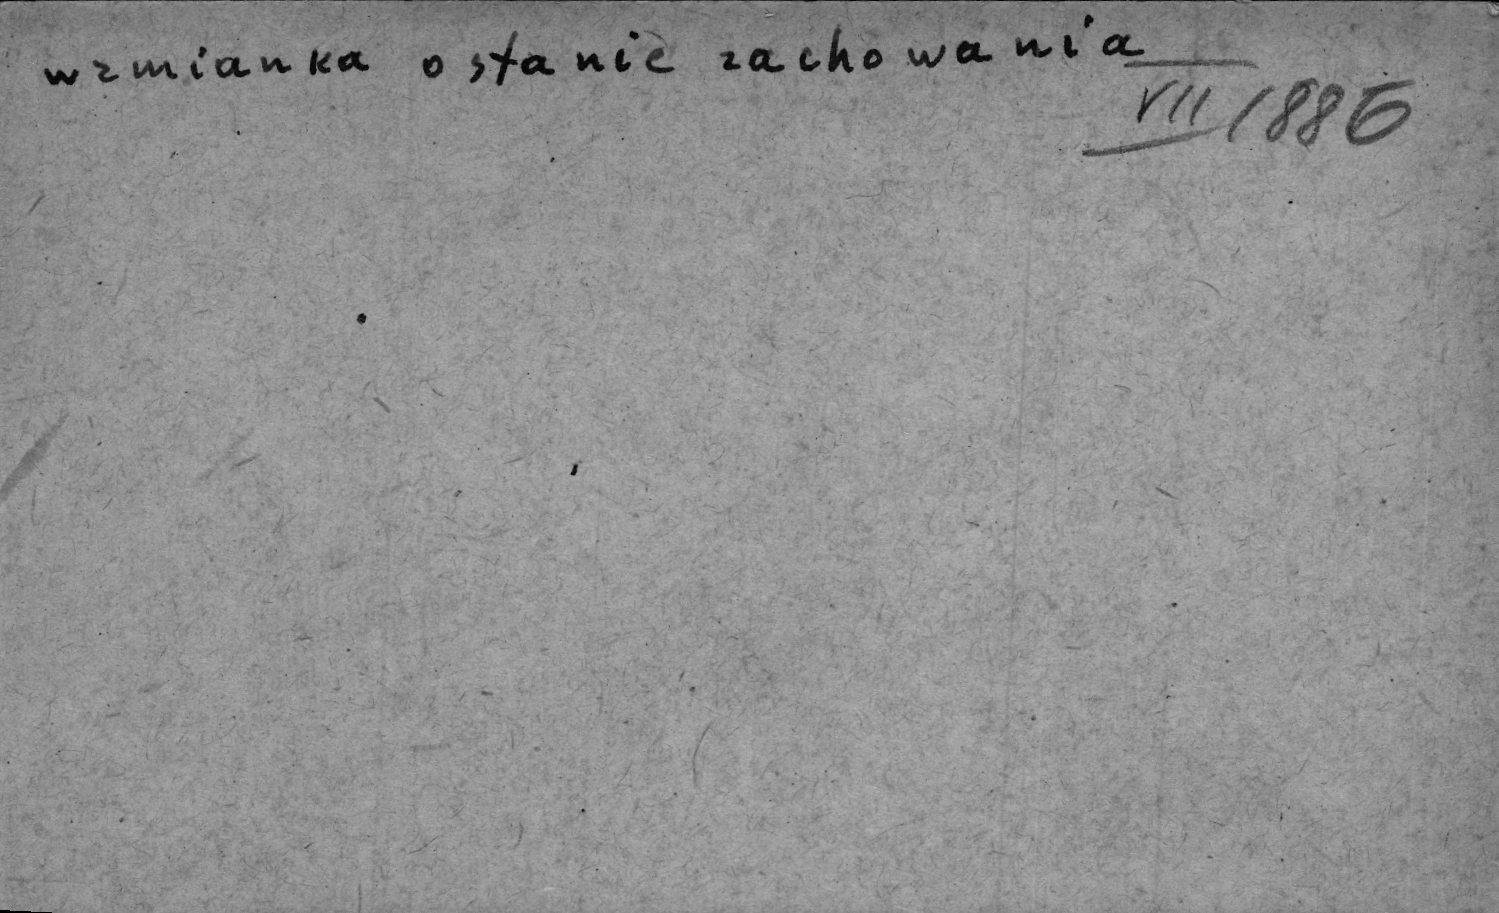 wzmianka o stanie zachowania
VII/1886